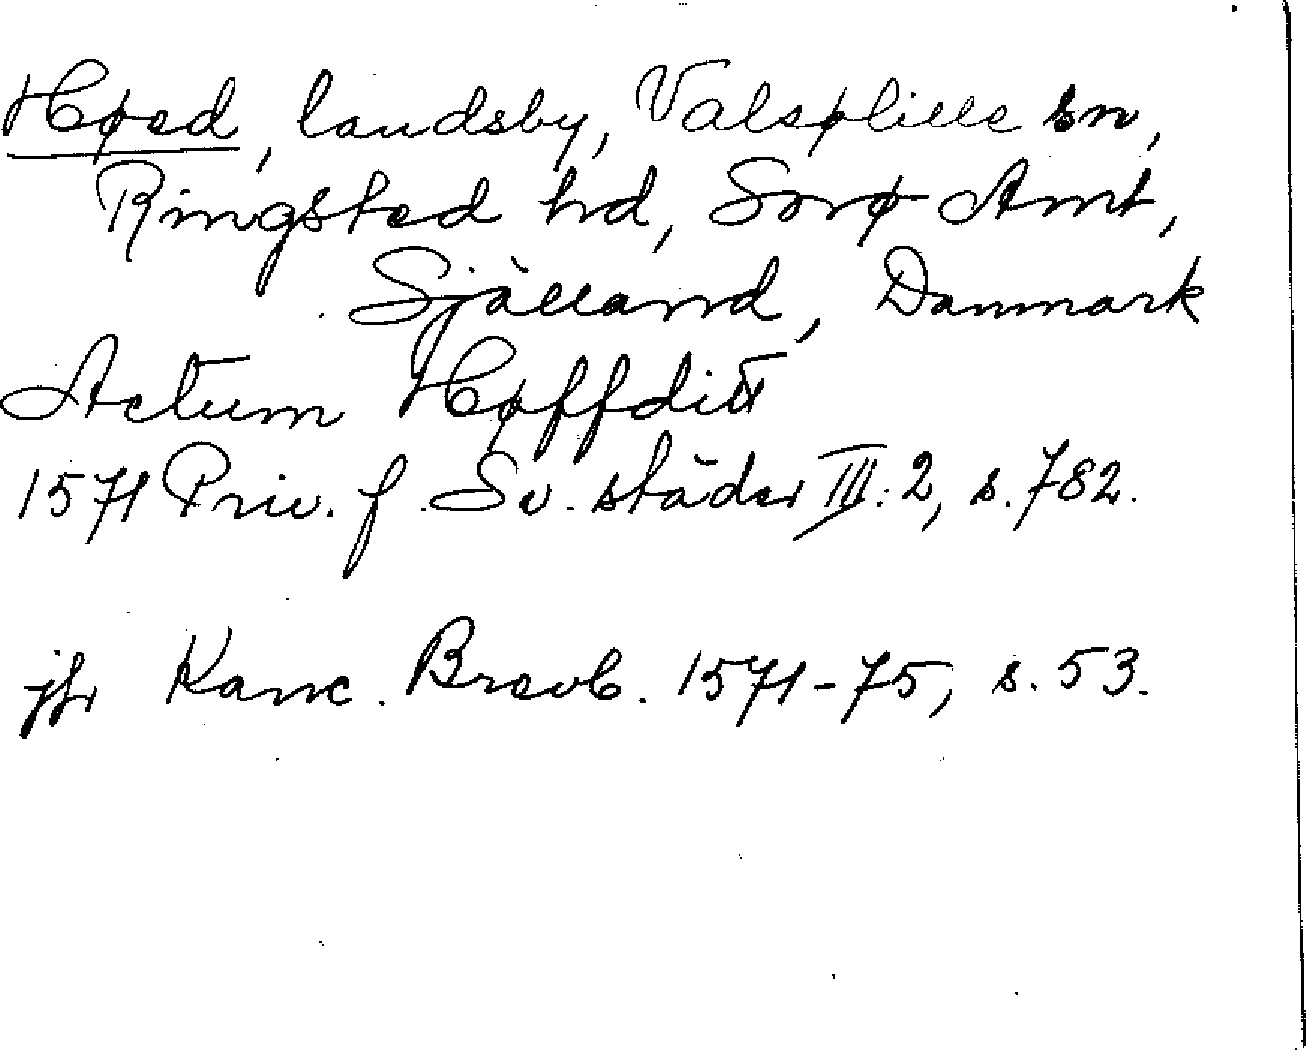 Høed, landsby, Valsølille sn,
Ringsted hd, Sorø Amt,
Själland, Danmark
Actum Høffditt
1571 Priv. f. Sv. städer III:2, s. 782.
jfr Kanc. Brevb. 1571-75, s. 53.